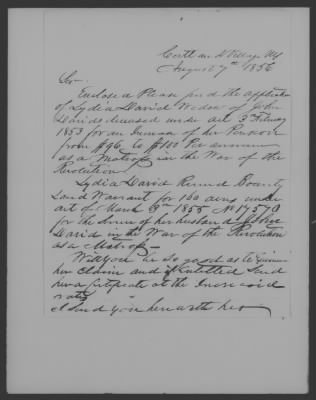 Cortland Village NY
August 7th 1856
Sir
Enclosed Please find the application
of Lydia David Widow of John
Davids deceased under act 3rd Febuary
1853 for an Increase of her Pension
from $96 to $100 Per annum
as a Matross in the War of the
Revolution
Lydia David Recved Bounty
Land Warrant for 160 acres under
act of March 3d 1855 No 17570
for the Service of her husband John
David in the War of the Revolution
as a Matross
Will you be so good as to Examine
her Claim and if Entitled Send
her a Certificate at the Increased
rates
I Send you herewith her